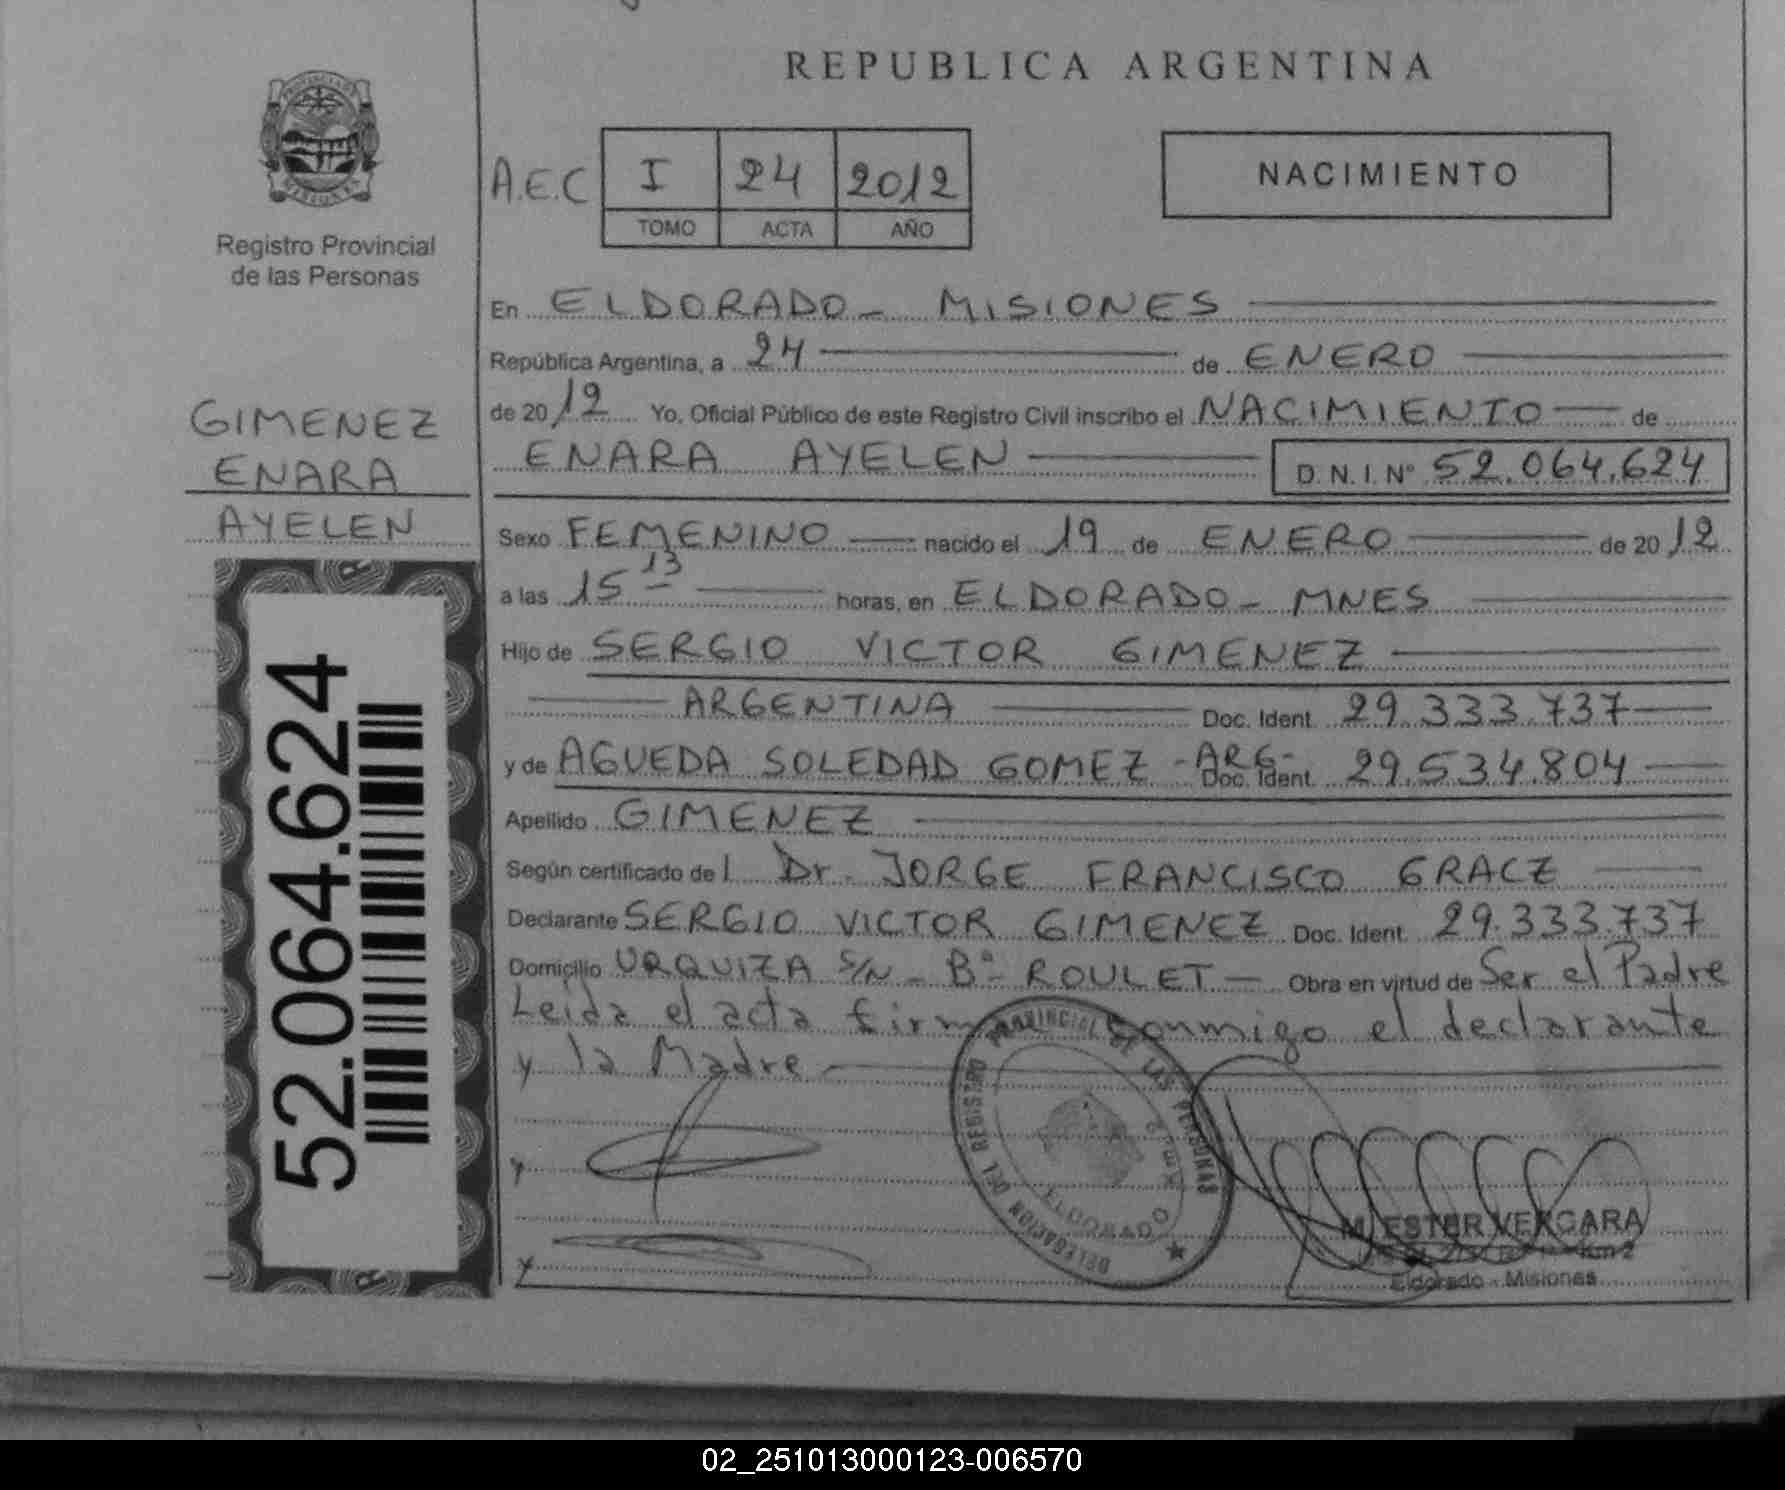 REPUBLICA ARGENTINA
PROVINCIA DE
MISIONES
Registro Provincial
de las Personas
A.E.C
I 24 2012
TOMO ACTA AÑO
NACIMIENTO
En ELDORADO - MISIONES
República Argentina, a 24 de ENERO
de 2012 Yo, Oficial Público de este Registro Civil inscribo el NACIMIENTO de
ENARA AYELEN D.N.I. Nº 52.064.624
GIMENEZ
ENARA
AYELEN
Sexo FEMENINO nacido el 19 de ENERO de 2012
a las 15 13 horas, en ELDORADO - MNES
Hijo de SERGIO VICTOR GIMENEZ
ARGENTINA Doc. Ident. 29.333.737
y de AGUEDA SOLEDAD GOMEZ - ARG - Doc. Ident. 29.534.804
Apellido GIMENEZ
Según certificado del Dr. JORGE FRANCISCO GRACZ
Declarante SERGIO VICTOR GIMENEZ Doc. Ident. 29.333.737
Domicilio URQUIZA S/N - Bº ROULET - Obra en virtud de Ser el Padre
Leida el acta firma conmigo el declarante
y la Madre
52.064.624
DELEGACION DEL REGISTRO PROVINCIAL DE LAS PERSONAS
ELDORADO Km. 2
M. ESTER VERGARA
Km 2
Eldorado - Misiones
02_251013000123-006570